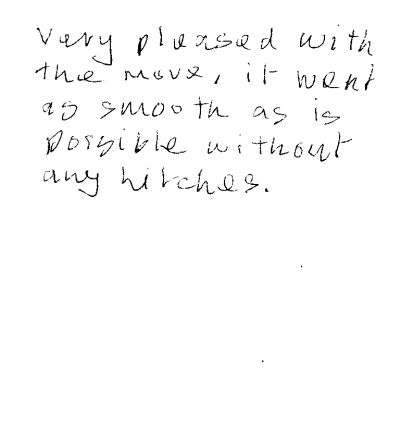 Very pleased with
the move, it went
as smooth as is
possible without
any hitches.